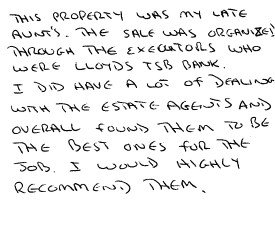 THIS PROPERTY WAS MY LATE
AUNT'S. THE SALE WAS ORGANIZED
THROUGH THE EXECUTORS WHO
WERE LLOYDS TSB BANK.
I DID HAVE A LOT OF DEALING
WITH THE ESTATE AGENTS AND
OVERALL FOUND THEM TO BE
THE BEST ONES FOR THE
JOB. I WOULD HIGHLY
RECOMMEND THEM.